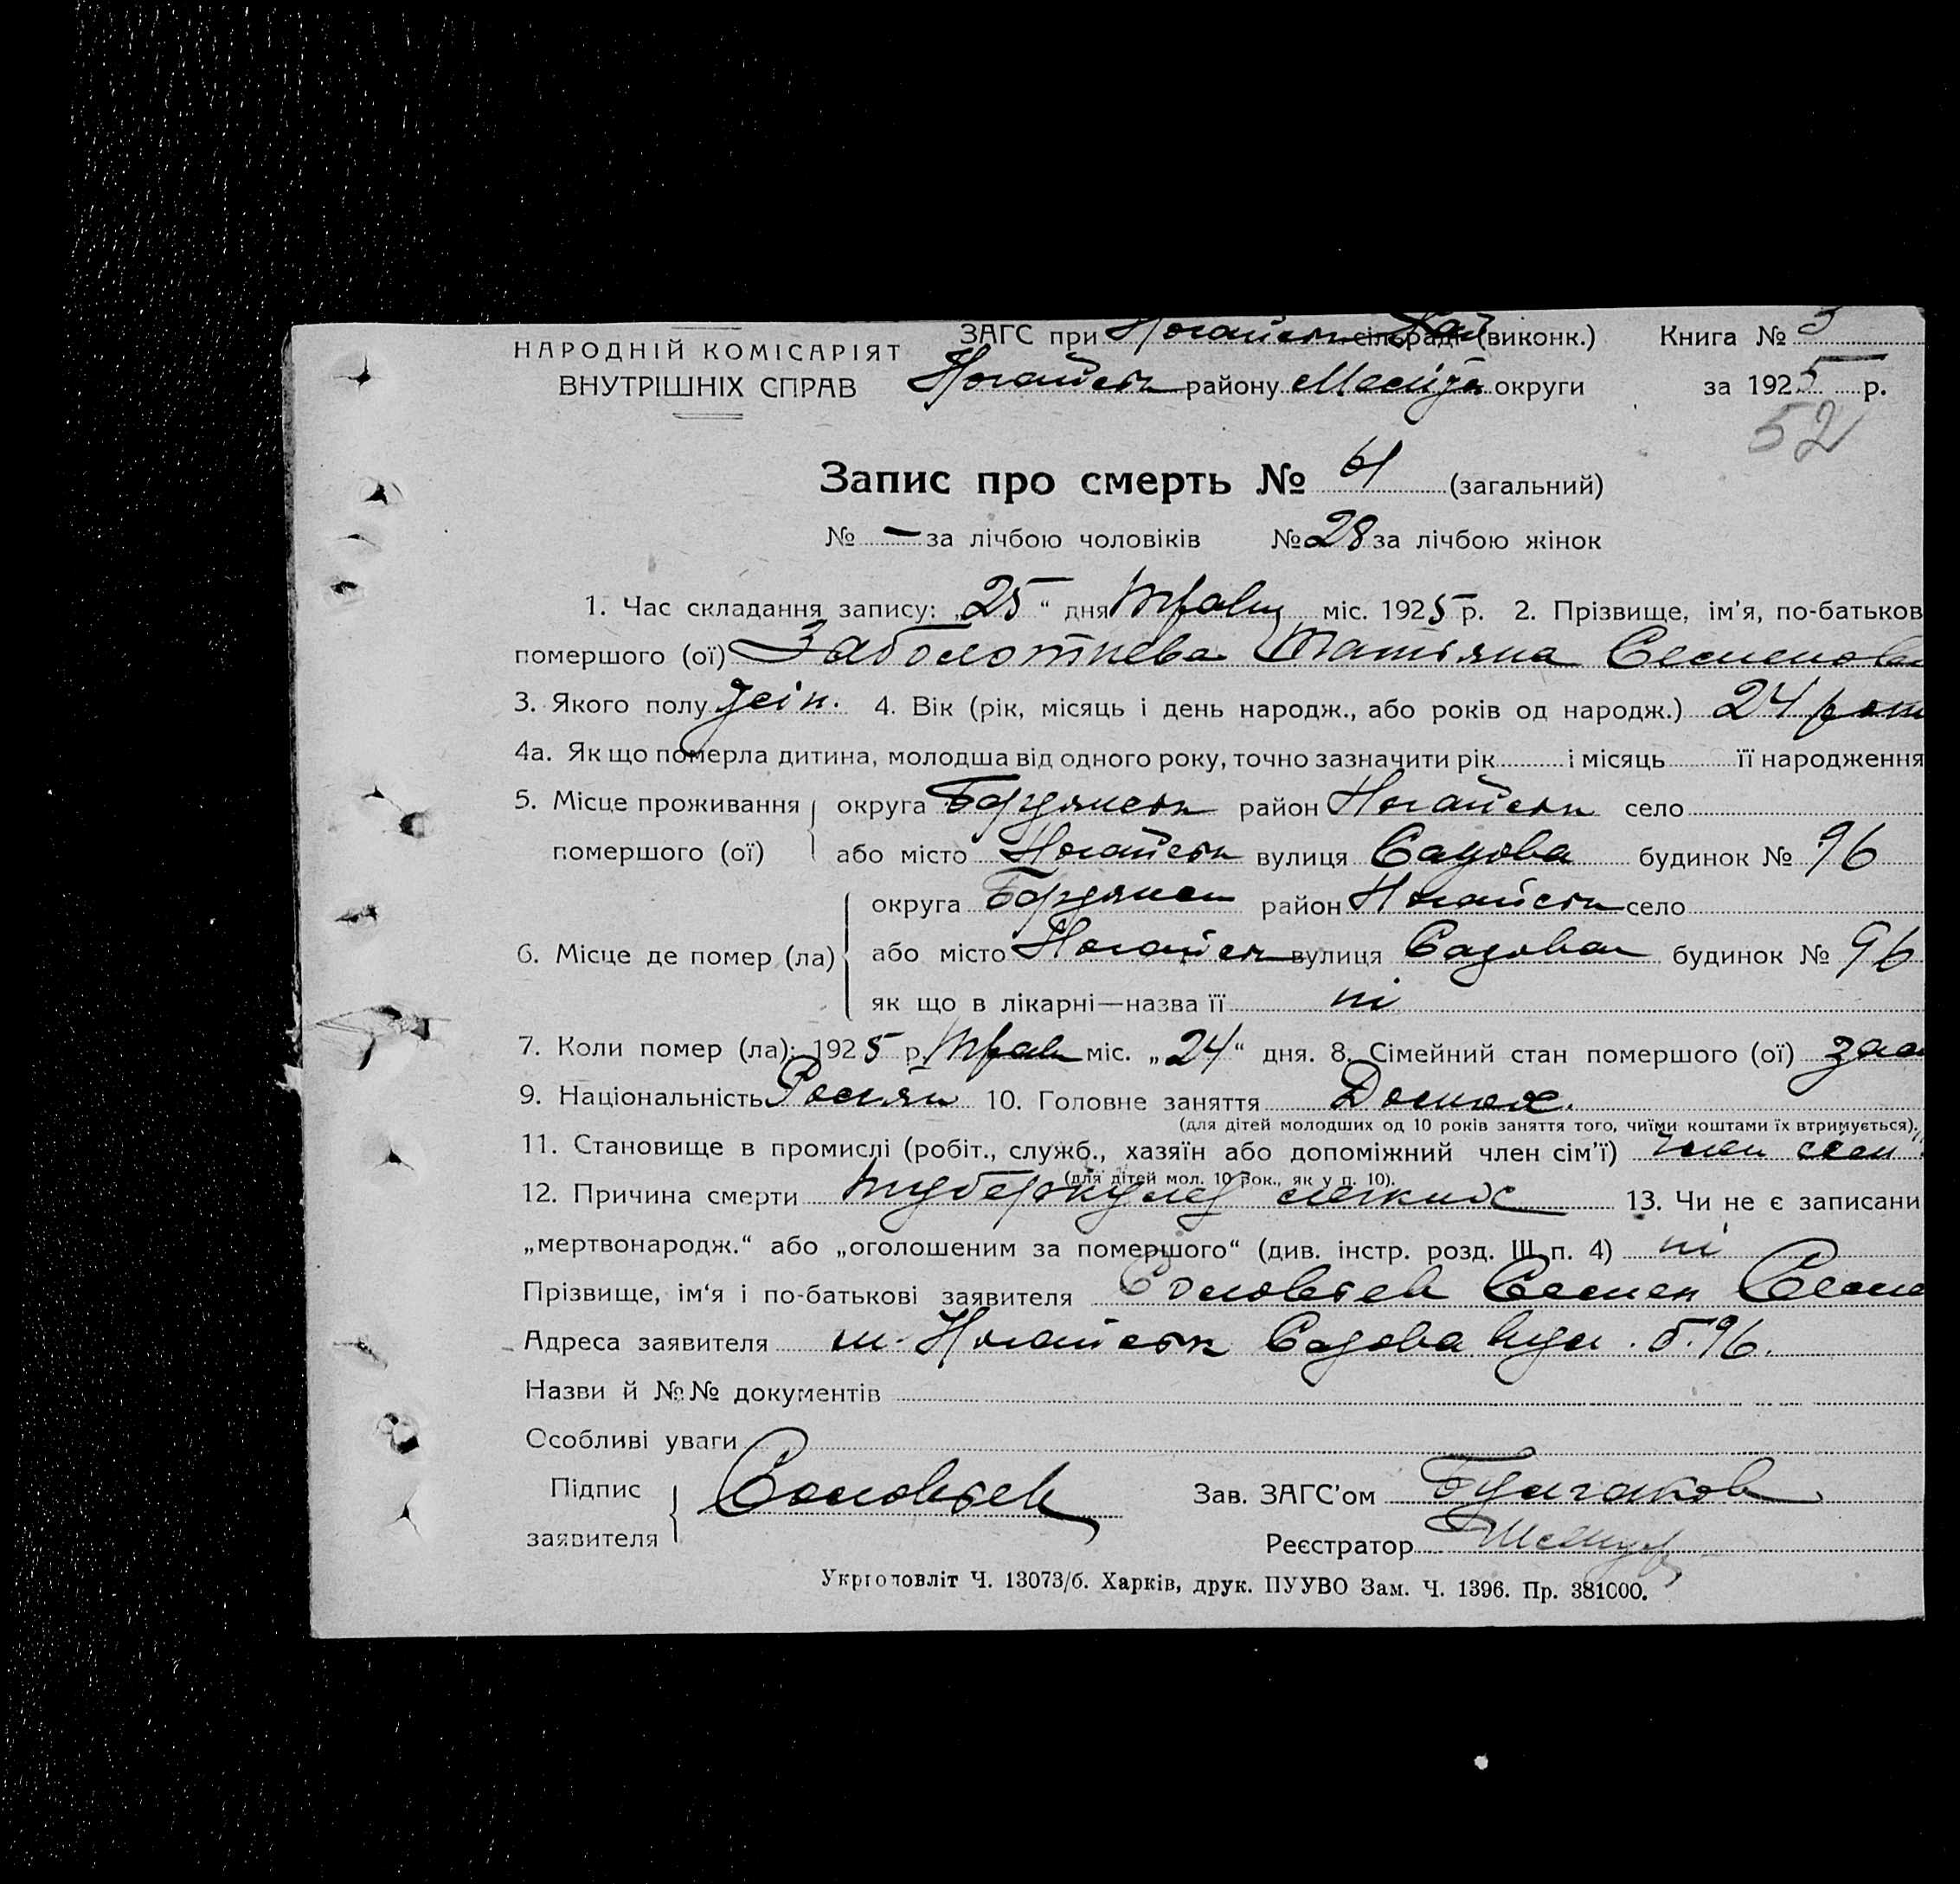 НАРОДНІЙ КОМІСАРІЯТ
ВНУТРІШНІХ СПРАВ
ЗАГС при Ногайськ сільраді Рай (виконк.)
Ногайськ району округи
Книга № 3
за 1925 р.
52
Запис про смерть № 61 (загальний)
№ — за лічбою чоловіків № 28 за лічбою жінок
1. Час складання запису: „25“ дня міс. 1925 р. 2. Прізвище, ім'я, по-батьков
помершого (ої) Заболотнева Татьяна Семенов
3. Якого полу жін. 4. Вік (рік, місяць і день народж., або років од народж.) 24
4а. Як що померла дитина, молодша від одного року, точно зазначити рік і місяць її народження
5. Місце проживання помершого (ої) округа Бердянськ район Ногайськ село
або місто Ногайськ вулиця Садова будинок № 96
6. Місце де помер (ла) округа Бердянськ район Ногайськ село
або місто Ногайськ вулиця Садова будинок № 96
як що в лікарні—назва її ні
7. Коли помер (ла): 1925 р. Трав міс. „24“ дня. 8. Сімейний стан помершого (ої)
9. Національність Росіян 10. Головне заняття Домох.
(для дітей молодших од 10 років заняття того, чиїми коштами їх втримується).
11. Становище в промислі (робіт., служб., хазяїн або допоміжний член сім'ї) член сем
(для дітей мол. 10 рок., як у п. 10).
12. Причина смерти туберкулез легких 13. Чи не є записани
„мертвонародж.“ або „оголошеним за помершого“ (див. інстр. розд. Ш п. 4) ні
Прізвище, ім'я і по-батькові заявителя Соловьев Семен Семе
Адреса заявителя м. Ногайськ Садова вул. б. 96.
Назви й №№ документів
Особливі уваги
Підпис заявителя Соловьев
Зав. ЗАГС'ом Булгаков
Реєстратор
Укрголовліт Ч. 13073/б. Харків, друк. ПУУВО Зам. Ч. 1396. Пр. 381000.